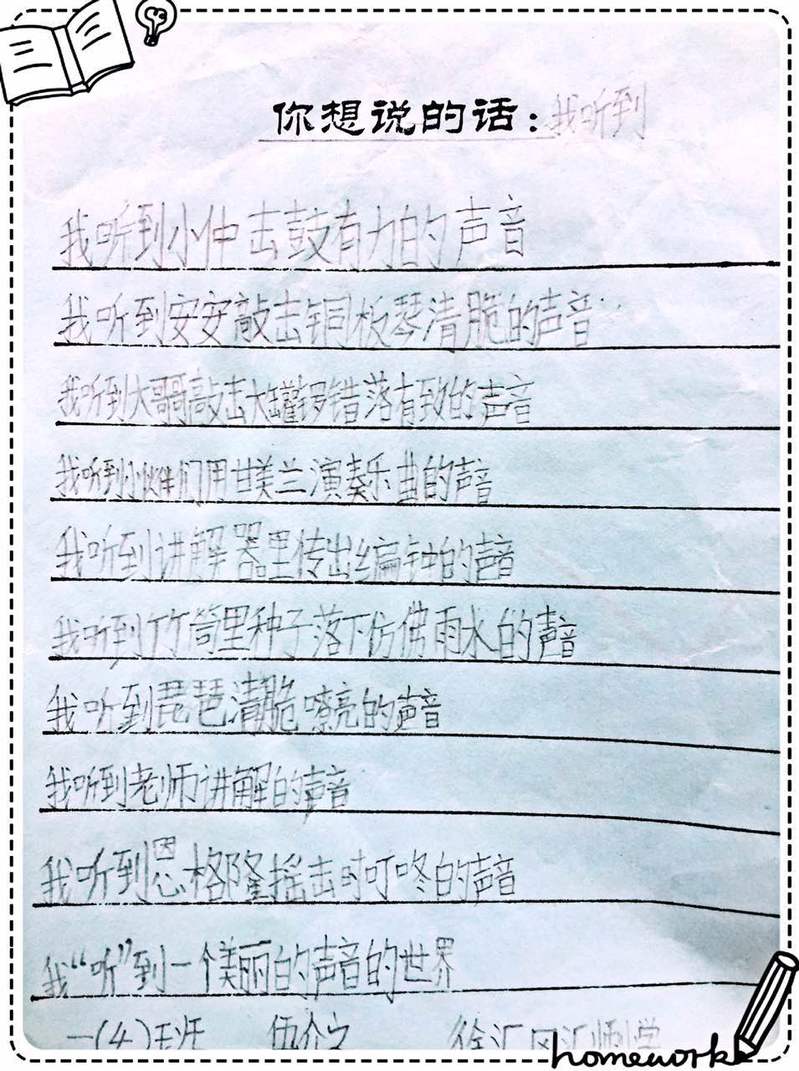 你想说的话：我听到
我听到小仲击鼓有力的声音
我听到安安敲击铜板琴清脆的声音
我听到大哥哥敲击大罐锣错落有致的声音
我听到小伙伴们用甘美兰演奏乐曲的声音
我听到讲解器里传出编钟的声音
我听到竹筒里种子落下仿佛雨水的声音
我听到琵琶清脆嘹亮的声音
我听到老师讲解的声音
我听到恩格隆摇击时叮咚的声音
我“听”到一个美丽的声音的世界
一(4)班 伍 徐汇区汇师小学
homework